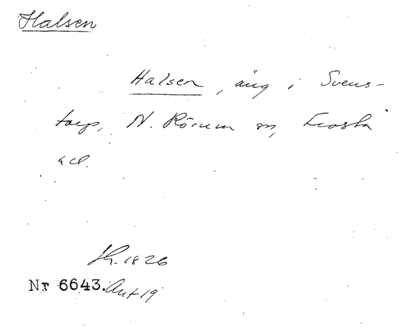 Halsen
Halsen, äng i Svens-
torp, N. Rörum sn, Frosta
hd.
Sk. 1826
Nr 6643. Akt 19